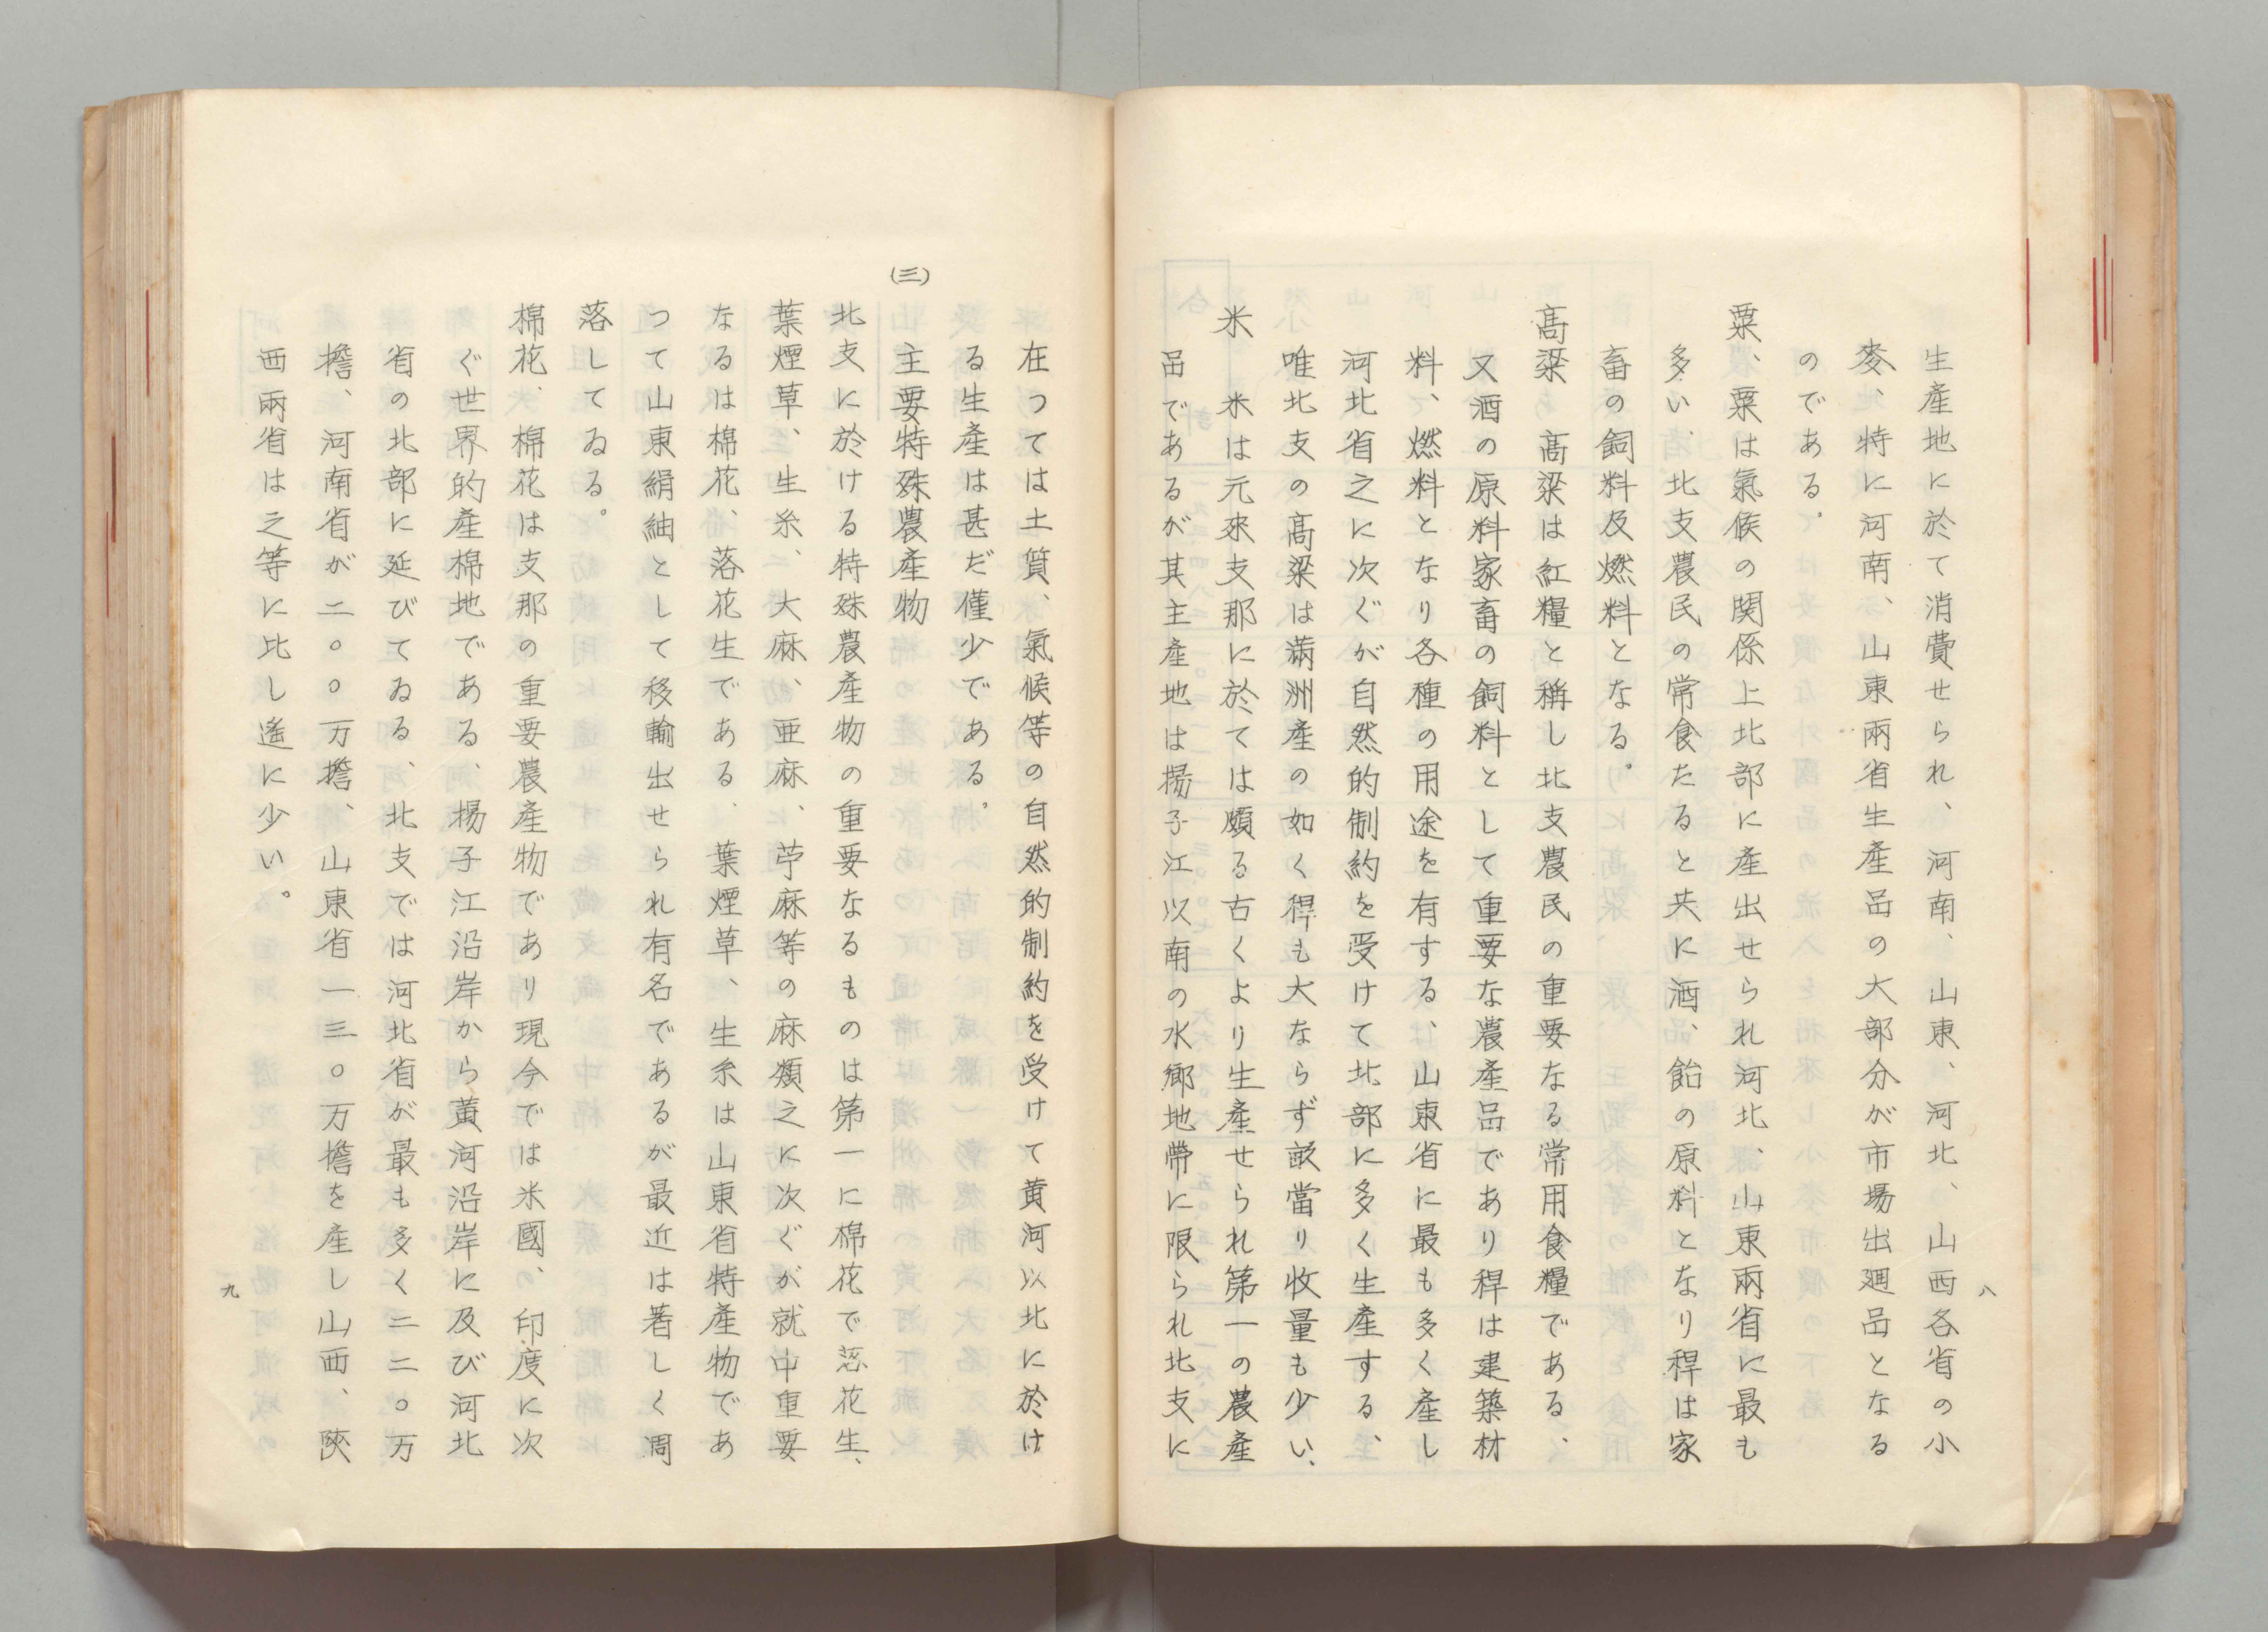 八
生產地に於て消費せられ、河南、山東、河北、山西各省の小
麥、特に河南、山東兩省生產品の大部分が市場出廻品となる
のである。
粟、粟は氣候の関係上北部に產出せられ河北、山東兩省に最も
多い、北支農民の常食たると共に酒、飴の原料となり稈は家
畜の飼料及燃料となる。
髙粱　髙粱は紅糧と稱し北支農民の重要なる常用食糧である、
又酒の原料家畜の飼料として重要な農產品であり稈は建築材
料、燃料となり各種の用途を有する、山東省に最も多く產し
河北省之に次ぐが自然的制約を受けて北部に多く生產する、
唯北支の髙粱は滿洲產の如く稈も大ならず畝當り收量も少い、
米　米は元來支那に於ては頗る古くより生產せられ第一の農產
品であるが其主產地は揚子江以南の水郷地帶に限られ北支に
在つては土質、氣候等の自然的制約を受けて黄河以北に於け
る生產は甚だ僅少である。
(三)　主要特殊農產物
北支に於ける特殊農產物の重要なるものは第一に棉花で落花生、
葉煙草、生糸、大麻、亜麻、苧麻等の麻類之に次ぐが就中重要
なるは棉花、落花生である、葉煙草、生糸は山東省特產物であ
つて山東絹紬として移輸出せられ有名であるが最近は著しく凋
落してゐる。
棉花、棉花は支那の重要農產物であり現今では米國、印度に次
ぐ世界的產棉地である、揚子江沿岸から黄河沿岸に及び河北
省の北部に延びてゐる、北支では河北省が最も多く二二〇万
擔、河南省が二〇〇万擔、山東省一三〇万擔を產し山西、陝
西兩省は之等に比し遙に少い。
九